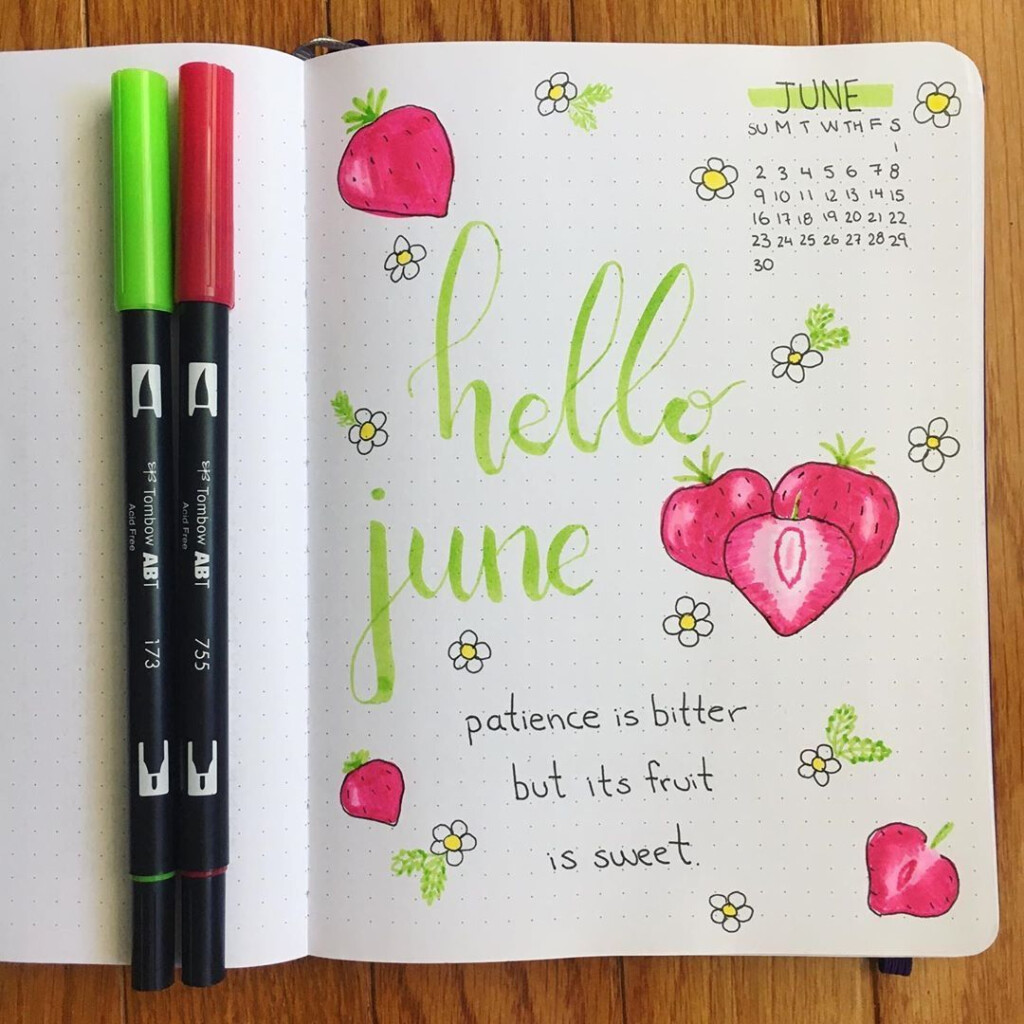 JUNE
SU M T W TH F S
1
2 3 4 5 6 7 8
9 10 11 12 13 14 15
16 17 18 19 20 21 22
23 24 25 26 27 28 29
30
hello
june
patience is bitter
but its fruit
is sweet.
Tombow ABT
Acid Free
173
Tombow ABT
Acid Free
755